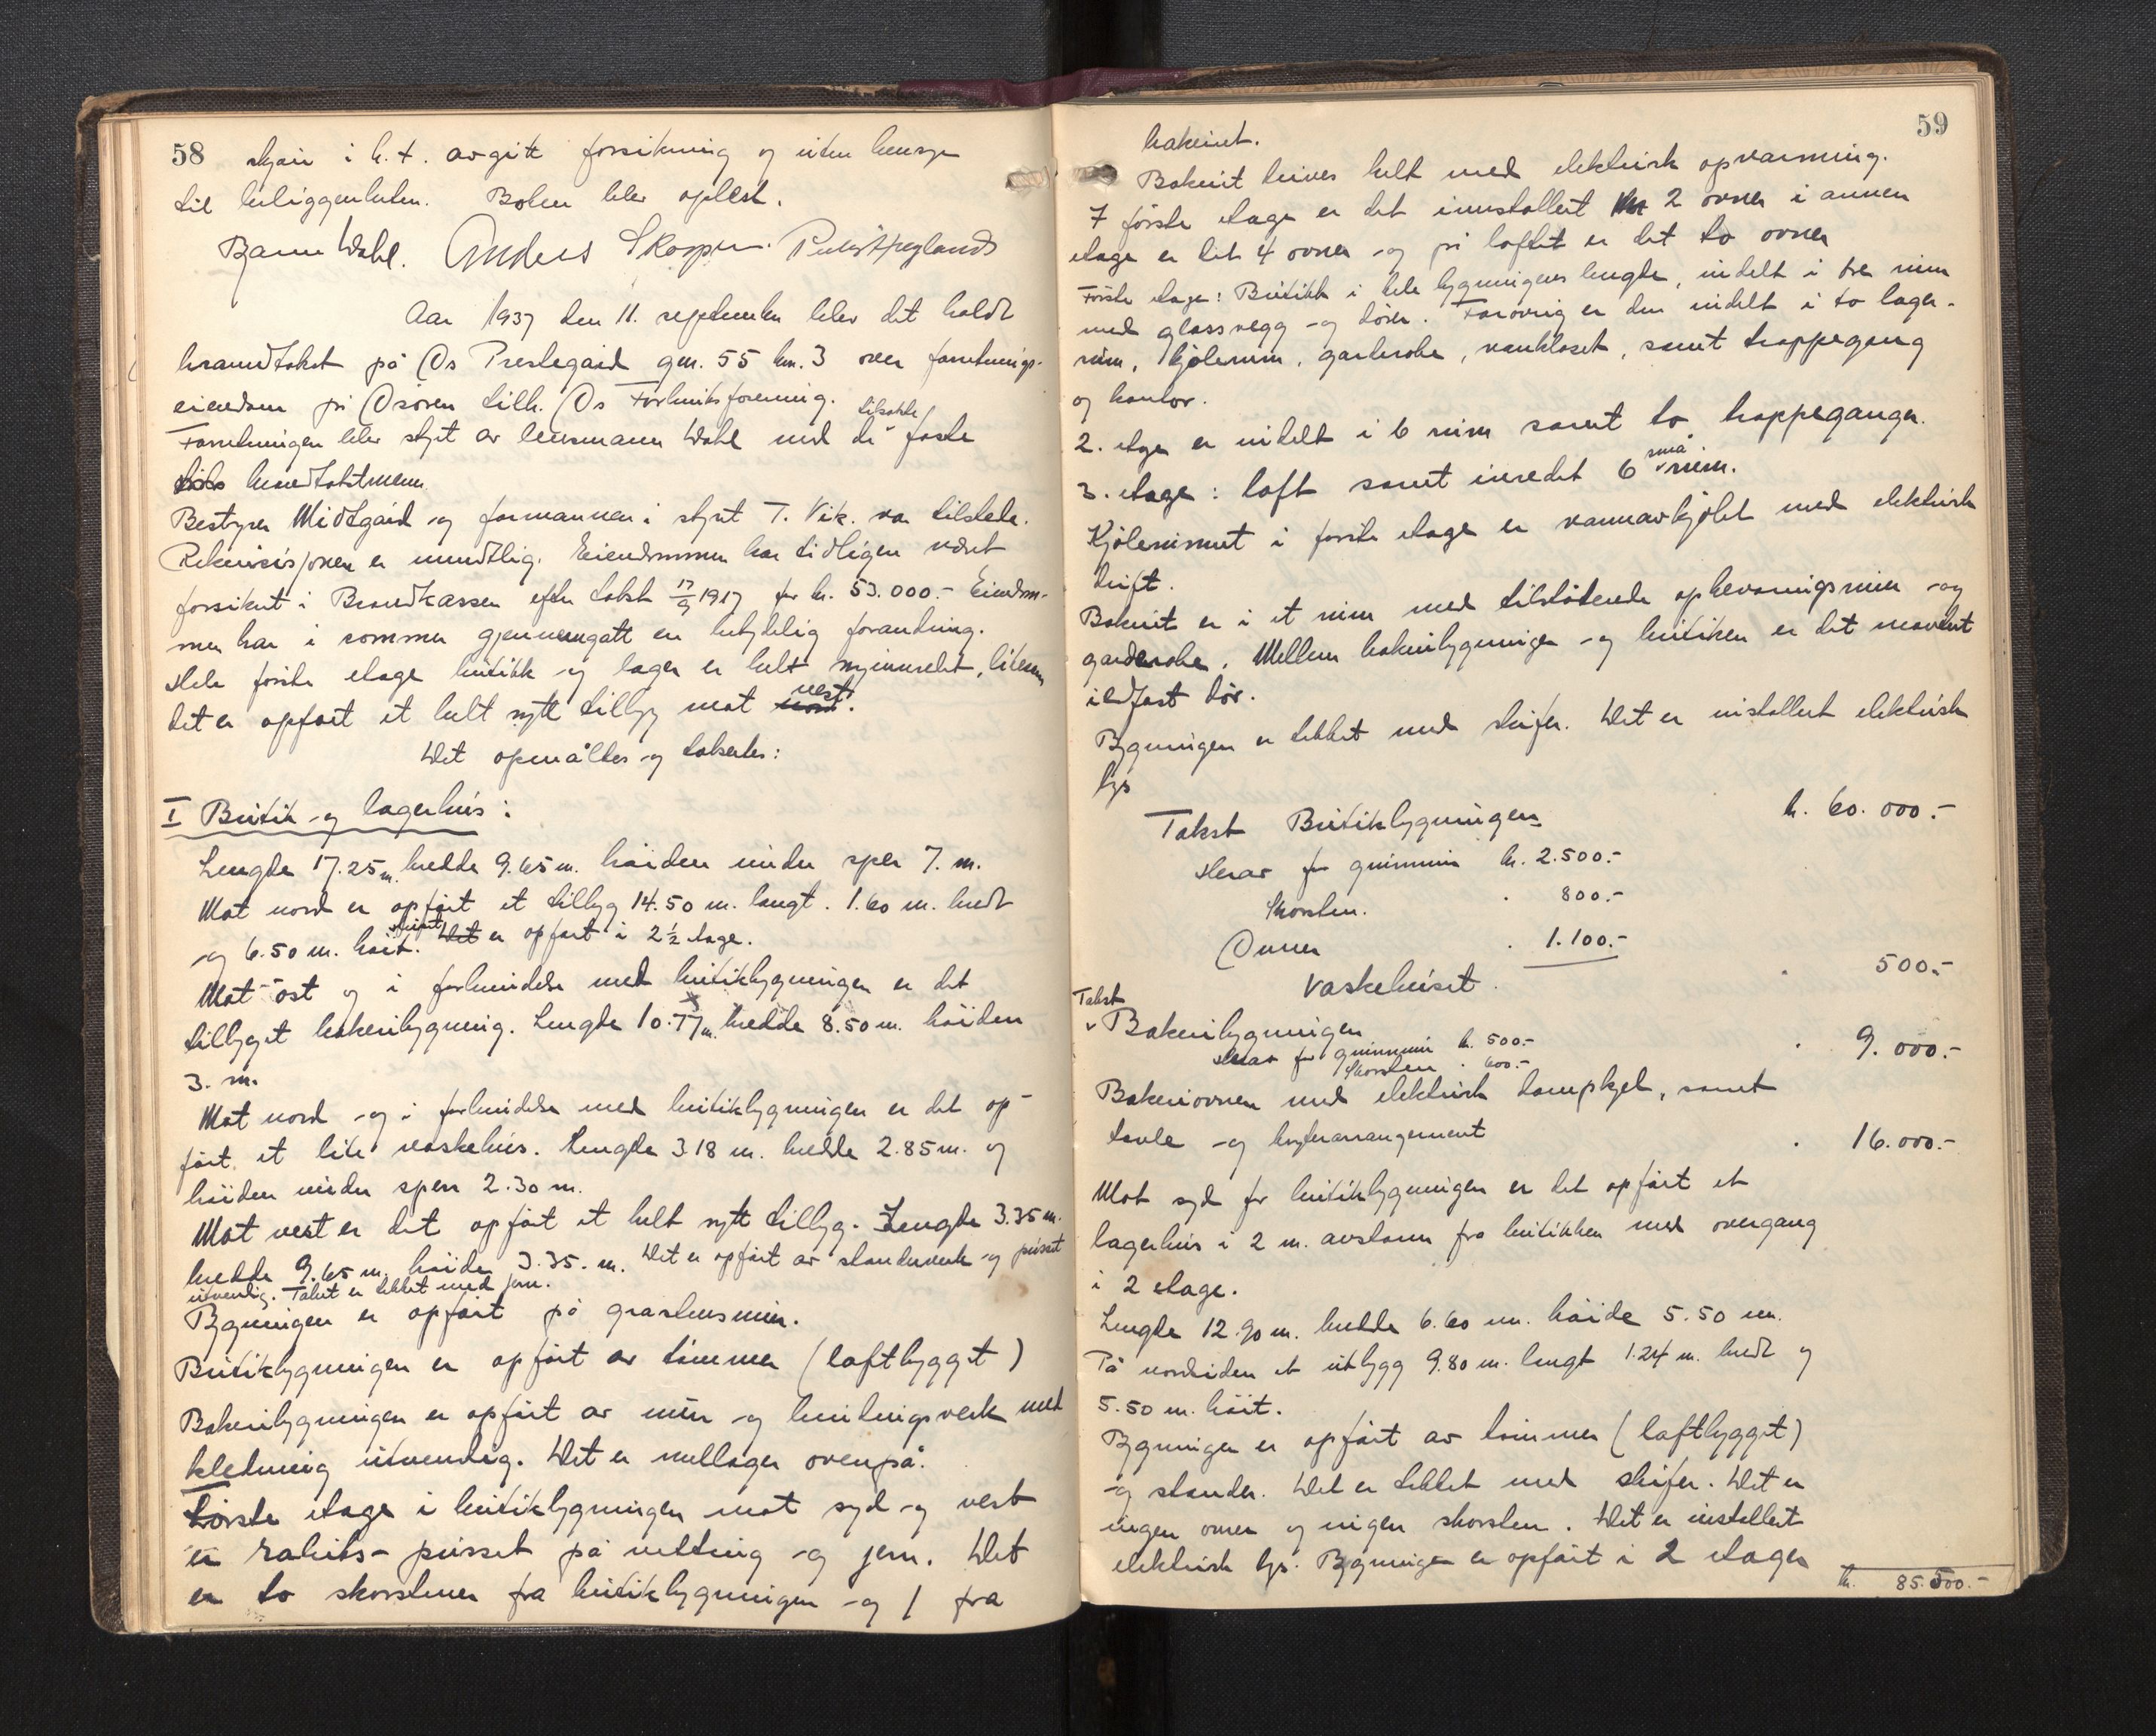 58
skjøn i h.t. avgitt forsikring og uten hensyn
til beliggenheten. Boken blev oplest.
Bjarne Wahl. Anders Skorpen. Peder Hegland
Aar 1937 den 11. september blev det holdt
brandtakst på Os Prestegård gnr. 55 bnr. 3 over forretnings-
eiendom på Osøren tilh. Os Forbruksforening.
Forretningen blev styrt av lensmann Wahl med de tilkalte faste
brandtakstmenn.
Bestyrer Midtgård og formannen i styret T. Vik. var tilstede.
Rekvisisjonen er mundtlig. Eiendommen har tidligere været
forsikret i Brandkassen efter takst 17/9 1917 for kr. 53.000.- Eiendom-
men har i sommer gjennemgått en betydelig forandring.
Hele første etage butikk og lager er helt nyinnredet, likesom
det er opført et helt nytt tilbygg mot vest.
Det opmåltes og takseres:
I Butik og lagerhus:
Lengde 17.25 m. bredde 9.65 m. høiden under sper 7. m.
Mot nord er opført et tilbygg 14.50 m. langt. 1.60 m. bredt
og 6.50 m. høit. Huset er opført i 2 1/2 etage.
Mot øst og i forbindelse med butikbygningen er det
tilbygget bakeribygning. Lengde 10.77 m. bredde 8.50 m. høiden
3. m.
Mot nord og i forbindelse med butikbygningen er det op-
ført et lite vaskehus. Lengde 3.18 m. bredde 2.85 m. og
høiden under sper 2.30 m.
Mot vest er det opført et helt nytt tilbygg. Lengde 3.35 m.
bredde 9.65 m. høide 3.35. m. Det er opført av stenderverk og pusset
utvendig. Taket er tekket med jern.
Bygningen er opført på gråstensmur.
Butikbygningen er opført av tømmer (laftbygget)
Bakeribygningen er opført av mur og bindingsverk med
kledning utvendig. Det er mellager ovenpå.
Første etage i butikbygningen mot syd og vest
er rabits- pusset på netting og jern. Det
er to skorstener fra butikbygningen og 1 fra
59
bakeriet.
Bakeriet drives helt med elektrisk opvarming.
I første etage er det innstallert 2 ovner i annen
etage er det 4 ovner og på loftet er det to ovner
Første etage: Butikk i hele bygningens lengde, indelt i tre rum
med glassvegg og dører. Forøvrig er den indelt i to lager-
rum, kjølerum, garderobe, vanklosett, samt trappegang
og kontor.
2. etage er indelt i 6 rum samt to trappeganger.
3. etage: loft samt inredet 6 små rum.
Kjølerummet i første etage er vannavkjølet med elektrisk
drift.
Bakeriet er i et rum med tilstøtende opbevaringsrum og
garderobe. Mellem bakeribygningen og butiken er det montert
ildfast dør.
Bygningen er tekket med skifer. Det er installert elektrisk
lys
Takst Butikbygningen kr. 60.000.-
Herav for grunnmur kr. 2.500.-
Skorsten. " 800.-
Ovner " 1.100.-
Vaskehuset. " 500.-
Takst
v Bakeribygningen " 9.000.-
Herav for grunnmur kr. 500.-
Skorsten " 600.-
Bakeriovnen med elektrisk dampkjel, samt
tavle og bryterarrangement " 16.000.-
Mot syd for butikbygningen er det opført et
lagerhus i 2 m. avstann fra butikken med overgang
i 2 etage.
Lengde 12.90 m. bredde 6.60 m. høide 5.50 m.
På nordsiden et utbygg 9.80 m. lengt 1.24 m. bredt og
5.50 m. høit.
Bygningen er opført av tømmer (laftbygget)
og stander. Det er tekket med skifer. Det er
ingen ovner og ingen skorsten. Det er installert
elektrisk lys. Bygningen er opført i 2 etager
kr. 85.500.-